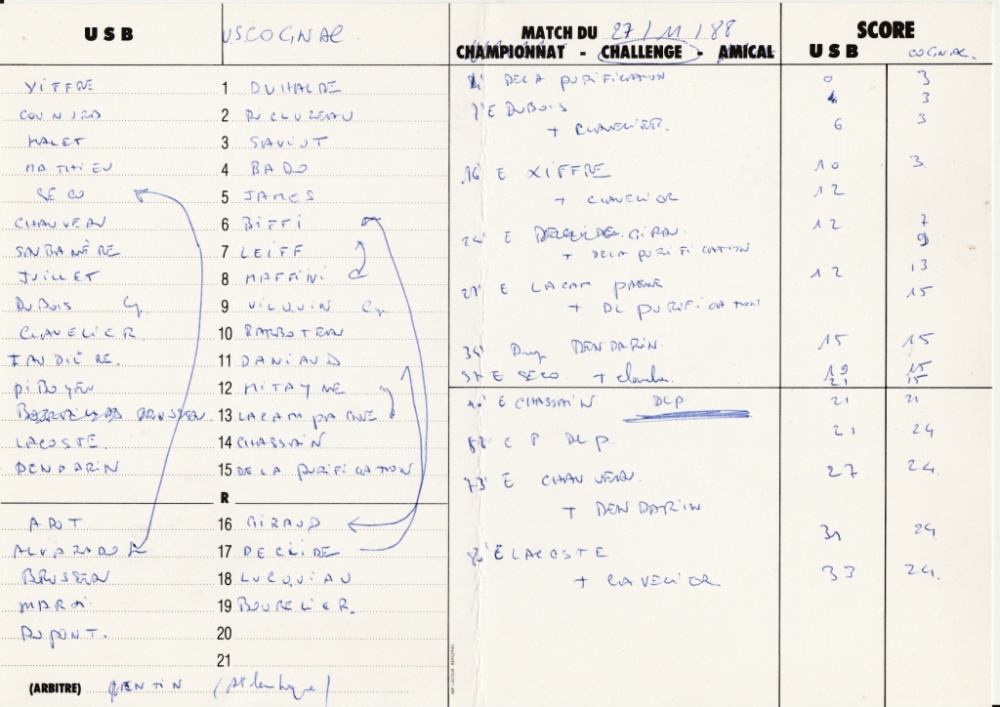 USB US COGNAC
XIFFRE 1 DUHALDE
COUNORD 2 DICLUZEAU
MALET 3 SAVIOT
MATHIEU 4 BADO
SECO 5 JAMES
CHAUVEAU 6 BIFFI
SORBADÈRE 7 LEIFF
JUILLET 8 MAFFINI
DUBOIS Cp 9 VILQUIN Cp
CLAVELIER 10 BARBOTEAU
TAUDIÈRE. 11 DANIAUD
PIBOYEU 12 MITAYNE
13 LACAMPAGNE
LACOSTE. 14 CHASSAIN
DENDARIN 15 DE LA PURIFICATION
R
ADOT 16 GIRAUD
ALVARADO 17 DECLIDE
18 LUCQUIAU
MARTI 19 BOURELIER.
DUPONT. 20
21
(ARBITRE) QUENTIN (Atlantique)
MATCH DU 27/11/88
CHAMPIONNAT - CHALLENGE - AMICAL
SCORE
USB COGNAC
DE LA PURIFICATION 0 3
7' E DUBOIS 4 3
+ CLAVELIER. 6 3
16' E XIFFRE 10 3
+ CLAVELIER 12
E GIRAUD 12 7
+ DE LA PURIFICATION 9
27' E LACAMPAGNE 12 13
+ DL PURIFICATION 15
34' Drop DENDARIN 15 15
E SECO + clavelier. 19 15
21 15
E CHASSAIN DLP 21 21
P DLP 21 24
73' E CHAUVEAU. 27 24
+ DENDARIN
E LACOSTE 31 24
+ CLAVELIER 33 24.